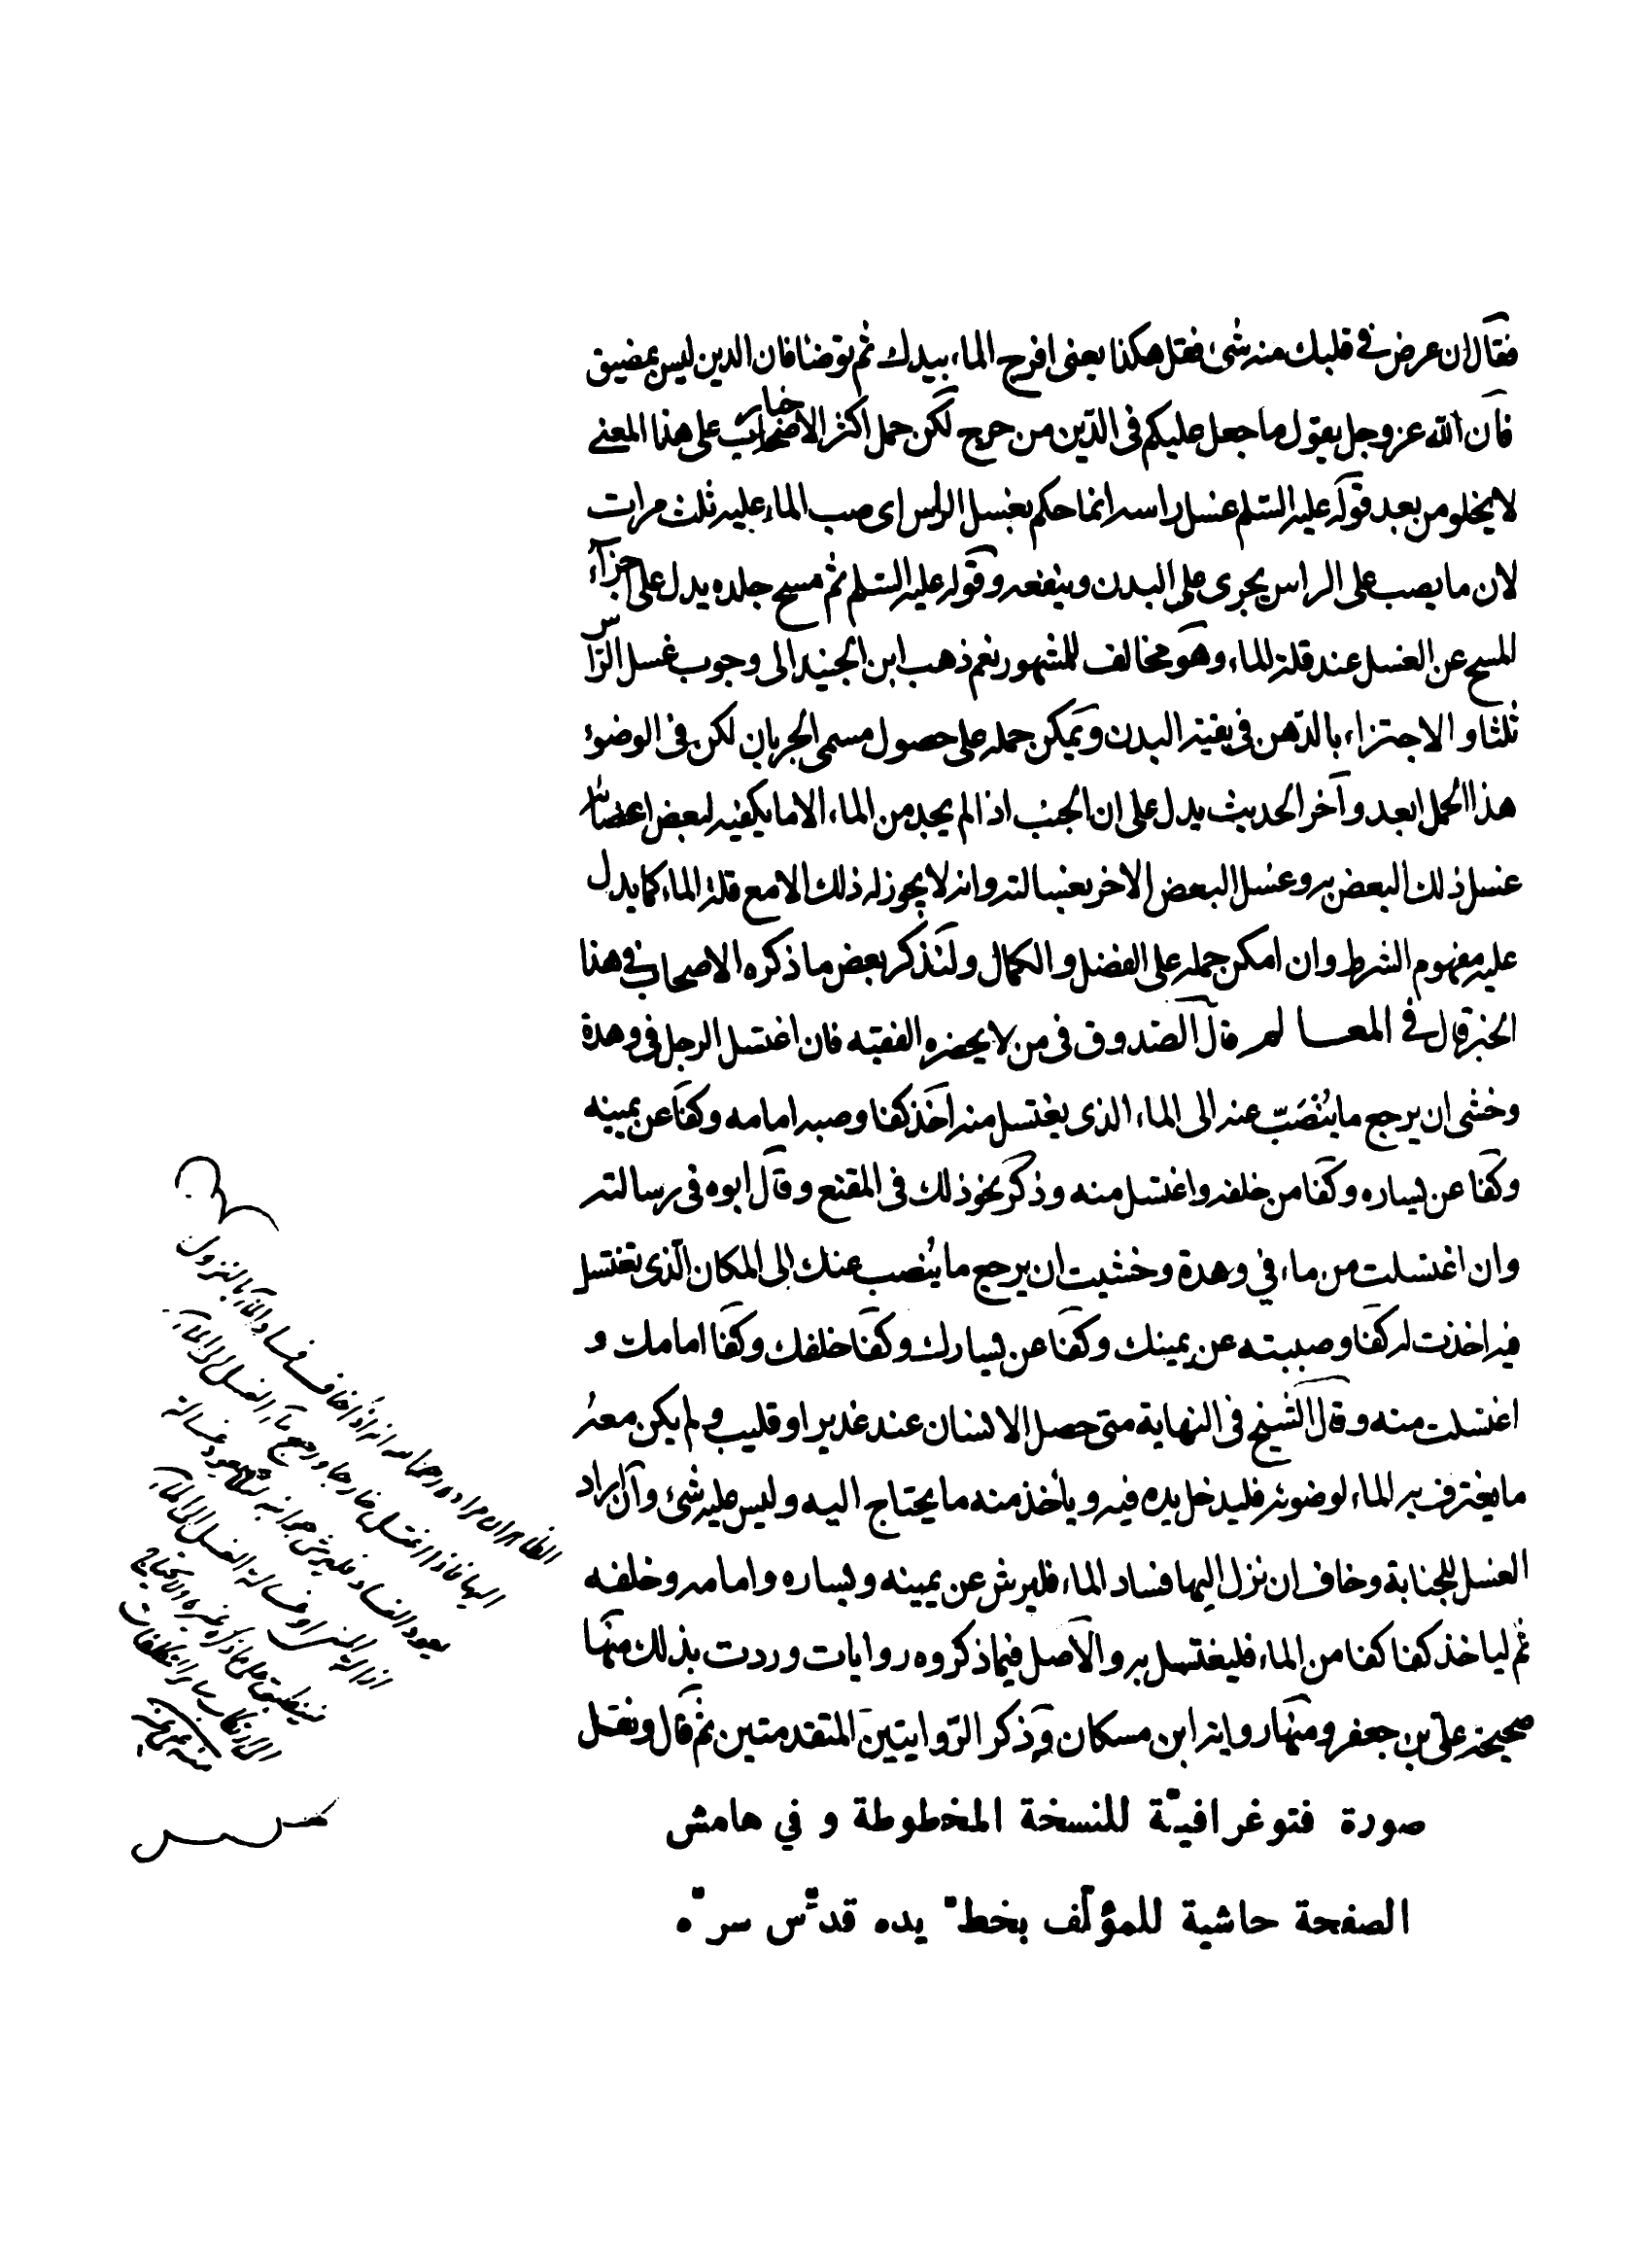 فقال ان عرض في قلبك منه شئ فقل هكذا يعنى افرج الماء بيدك ثم توضا فان الدين ليس بمضيق
فان الله عز وجل يقول ما جعل عليكم فى الدّين من حرج لكن حمل اكثر الاخبار على هذا المعنى
لا يخلو من بعد قوله عليه السّلم غسل راسه انما حكم بغسل الراس اى صب الماء عليه ثلث مرات
لان ما يصب على الراس يجرى على البدن وينفعه وقوله عليه السّلم ثم مسح جلده يدل على اجزآء
المسح عن الغسل عند قلة الماء وهو مخالف للمشهور نعم ذهب ابن الجنيد الى وجوب غسل الرّاس
ثلثا والاجتزاء بالدّهن فى بقية البدن ويمكن حمله على حصول مسمى الجريان لكن فى الوضوء
هذا الحمل ابعد وآخر الحديث يدل على ان الجنب اذا لم يجد من الماء الا ما يكفيه لبعض اعضائه
غسل ذلك البعض به وغسل البعض الاخر بغسالته وانه لا يجوز له ذلك الا مع قلة الماء كما يدل
عليه مفهوم الشرط وان امكن حمله على الفضل والكمال ولنذكر بعض ما ذكره الاصحاب في هذا
الخبر قال في المعالم قال الصّدوق فى من لا يحضره الفقيه فان اغتسل الرجل فى وهدة
وخشى ان يرجع ما يُنْصَبّ عنه الى الماء الذى يغتسل منه اخذ كفا وصبه امامه وكفا عن يمينه
وكفا عن يساره وكفا من خلفه واغتسل منه وذكر نحو ذلك فى المقنع وقال ابوه فى رسالته
وان اغتسلت من ماء في وهدة وخشيت ان يرجع ما ينصب عنك الى المكان الّذى تغتسل
فيه اخذت له كفا وصببته عن يمينك وكفا عن يسارك وكفا خلفك وكفا امامك و
اغتسلت منه وقال الشيخ فى النهاية متى حصل الانسان عند غدير او قليب ولم يكن معه
ما يغترف به الماء لوضوئه فليدخل يده فيه ويأخذ منه ما يحتاج اليه وليس عليه شئ وان اراد
الغسل للجنابة وخاف ان نزل اليها فساد الماء فليرش عن يمينه ويساره وامامه وخلفه
ثم لياخذ كفا كفا من الماء فليغتسل به والاصل فيما ذكروه روايات وردت بذلك منها
صحيحة علىّ بن جعفر ومنها رواية ابن مسكان وذكر الرّوايتين المتقدمتين ثم قال ونقل
الظاهر ان مراده رضا
صورة فتوغرافيّة للنسخة المخطوطة و في هامش
الصفحة حاشية للمؤلّف بخطّ يده قدّس سرّه